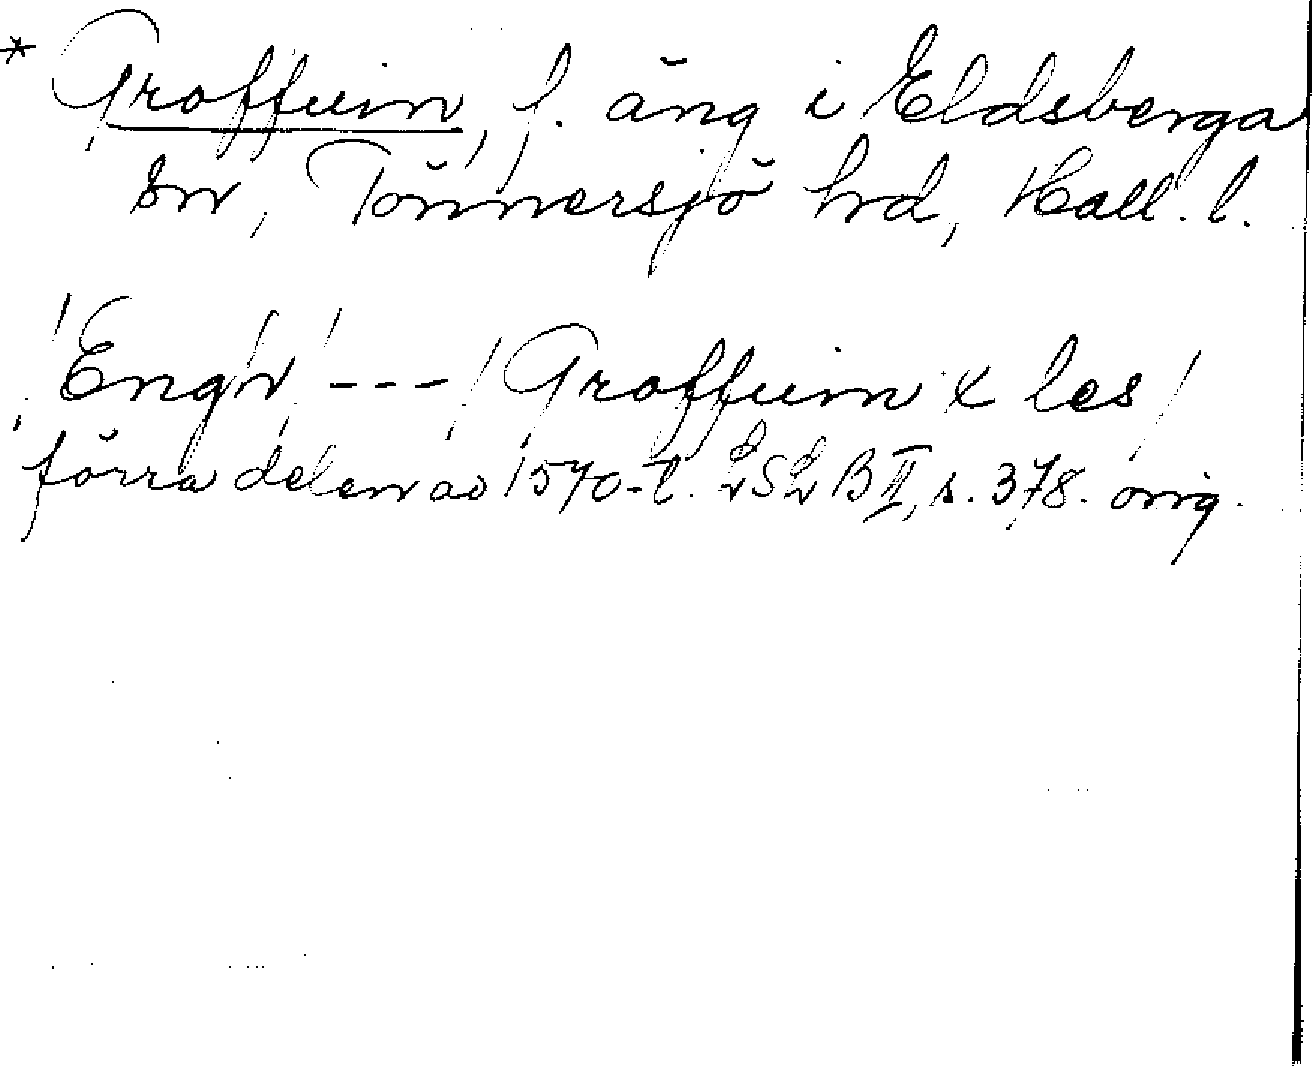 * Groffuin, f. äng i Eldsberga
sn, Tönnersjö hd, Hall. l.
Engn --- Groffuin x les
förra delen av 1570-t. LSLB II, s. 378. orig.